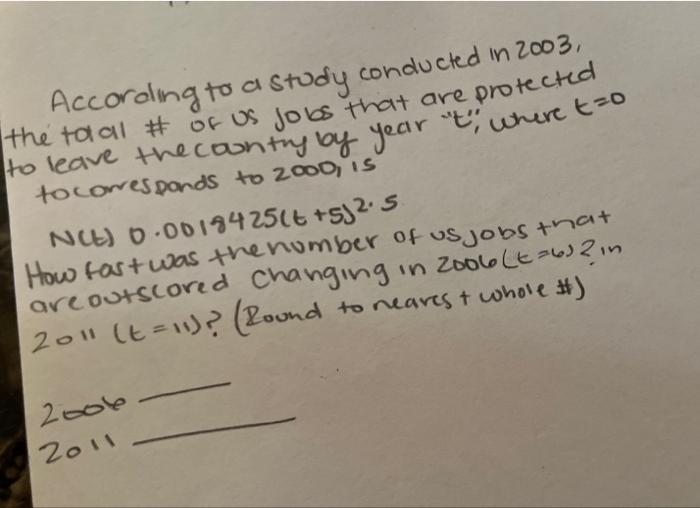 According to a study conducted in 2003,
the total # of US jobs that are protected
to leave the country by year "t", where t=0
to corresponds to 2000, is
N(t) 0.0018425(t+5)2.5
How fast was the number of us jobs that
are outscored changing in 2006 (t=6)? in
2011 (t=11)? (Round to nearest whole #)
2006
2011